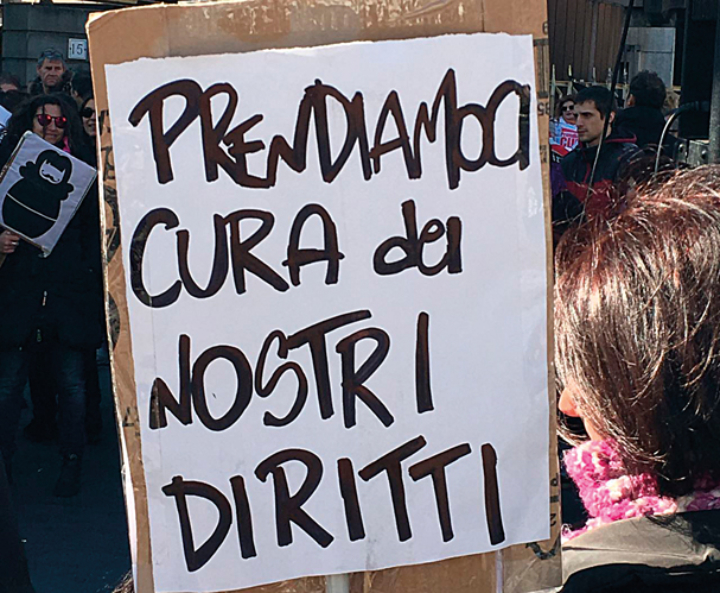 PRENDIAMOCI
CURA dei
NOSTRI
DIRITTI